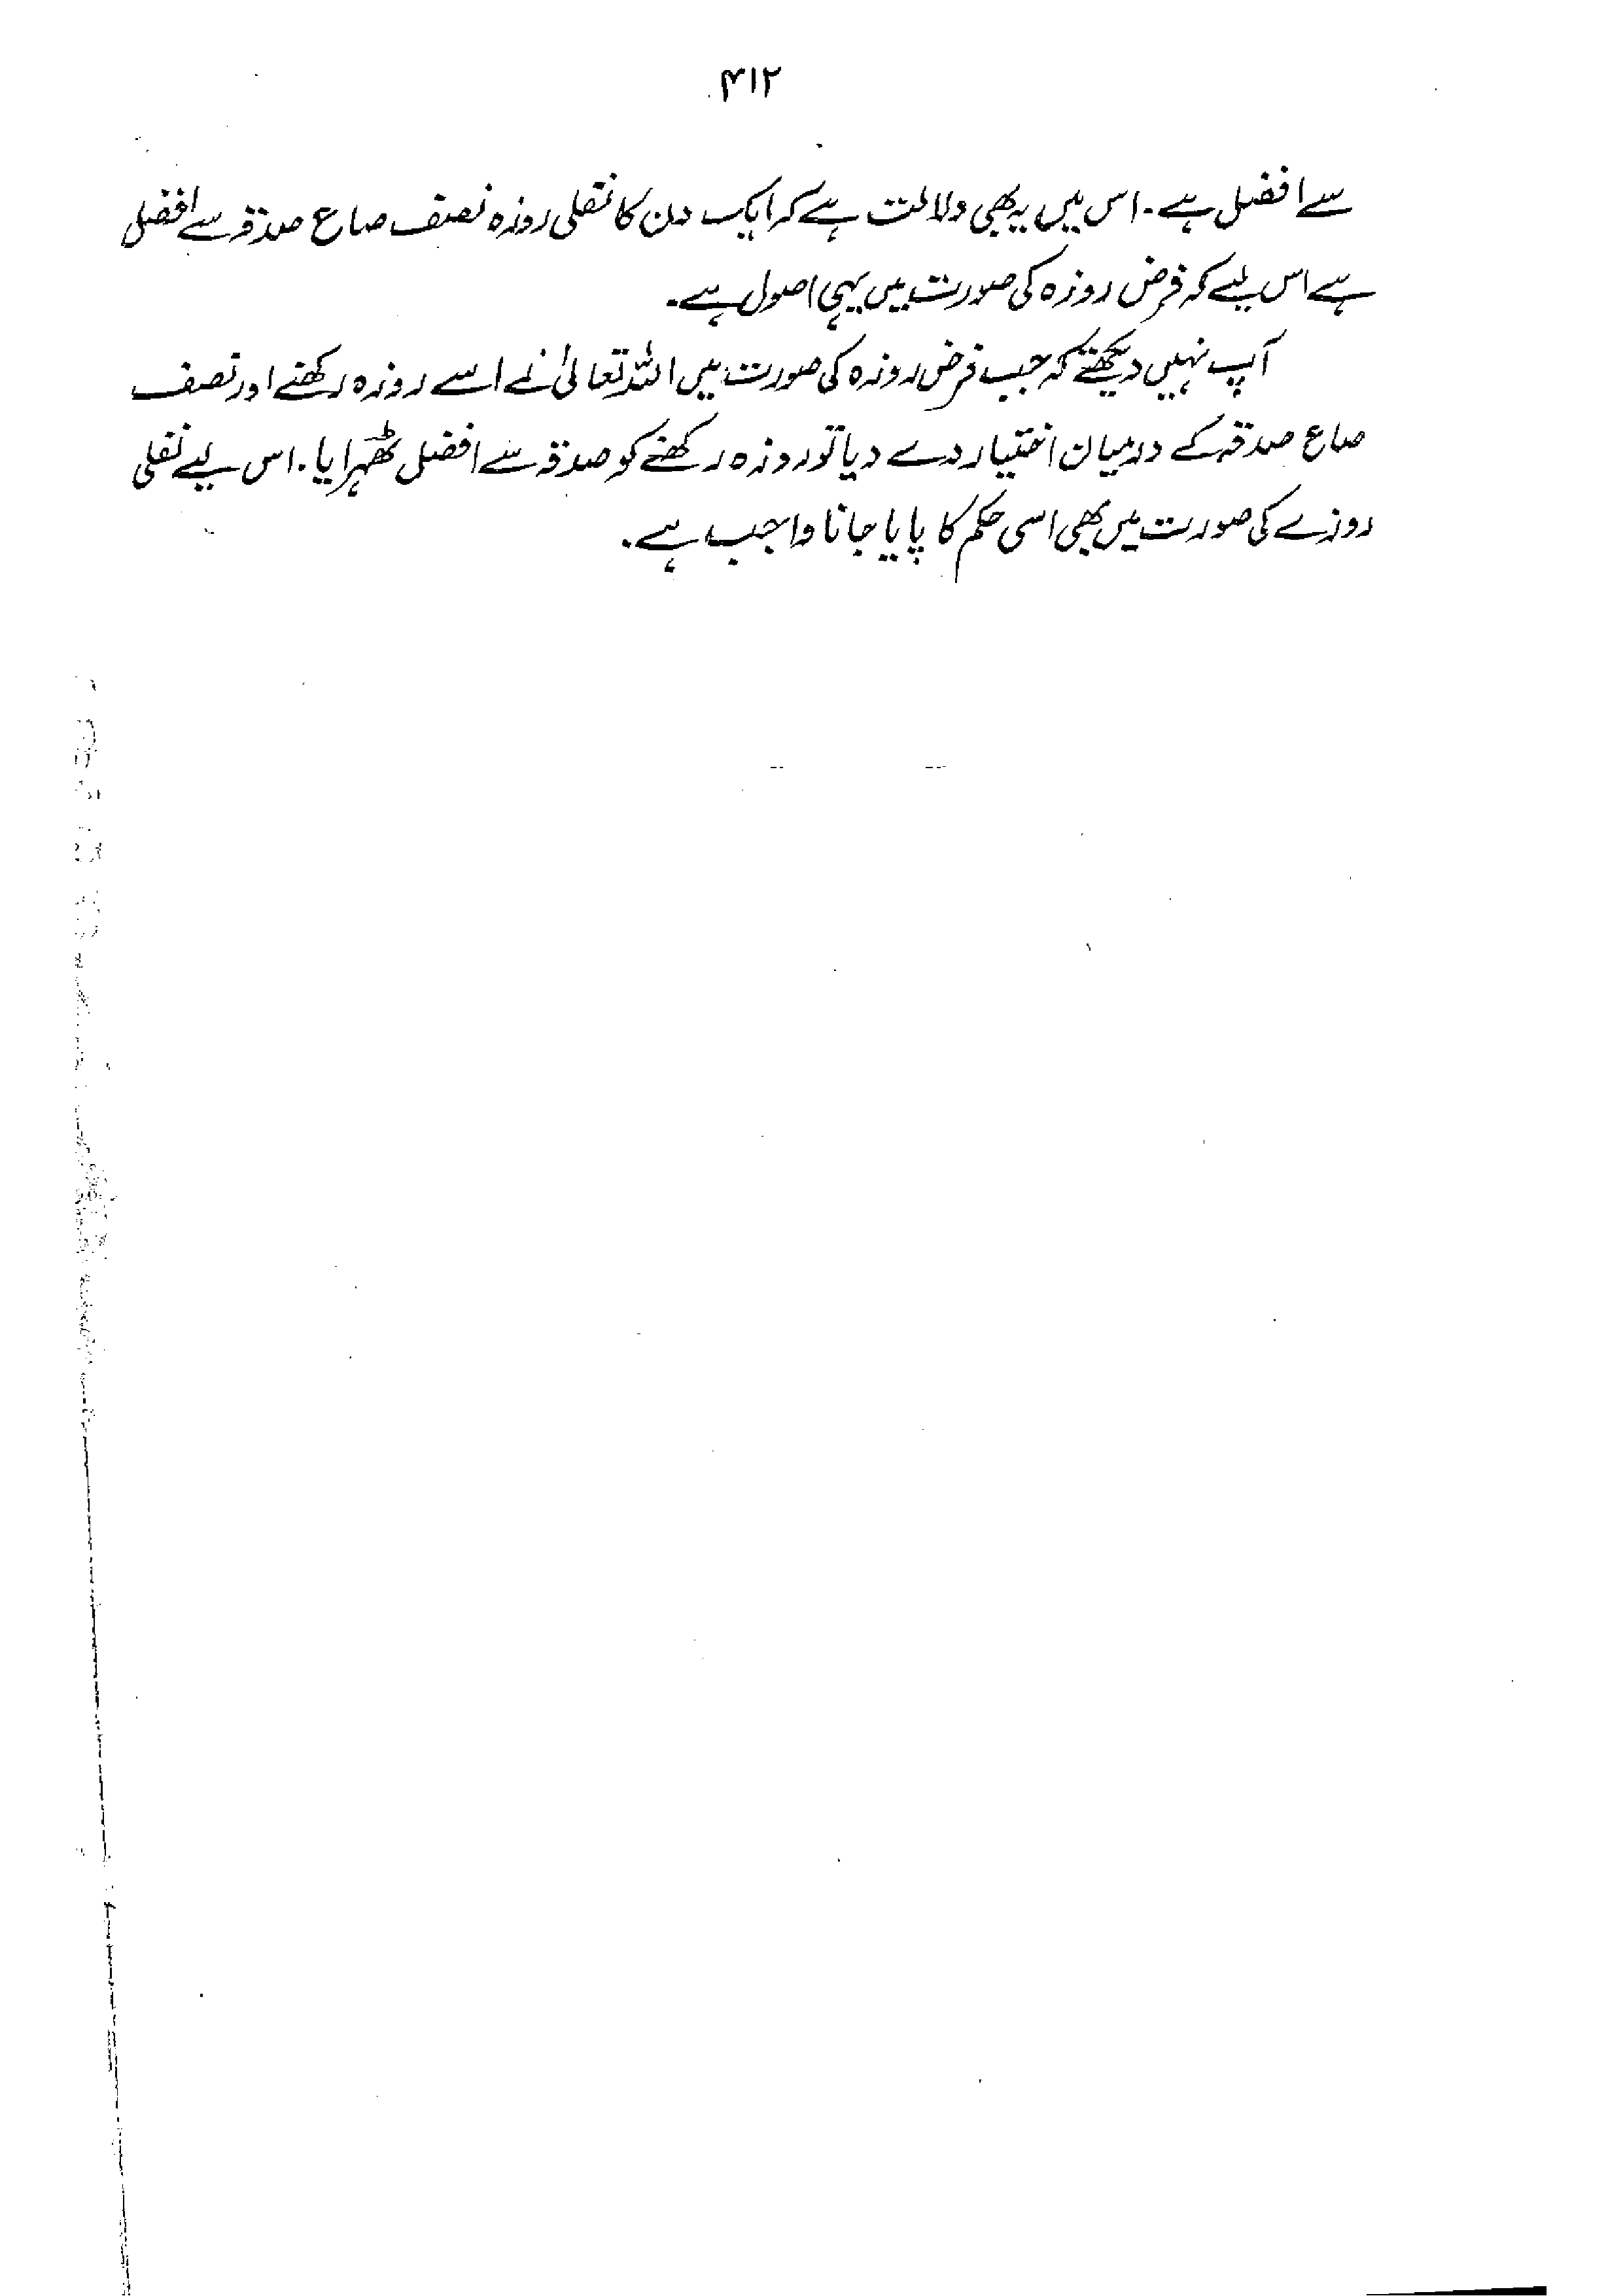 ۴۱۲
سے افضل ہے۔ اس میں یہ بھی دلالت ہے کہ ایک دن کا نفلی روزہ نصف صاع صدقہ سے افضل
ہے اس لیے کہ فرض روزہ کی صورت میں یہی اصول ہے۔
آپ نہیں دیکھتے کہ جب فرض روزہ کی صورت میں اللہ تعالیٰ نے اسے روزہ رکھنے اور نصف
صاع صدقہ کے درمیان اختیار دے دیا تو روزہ رکھنے کو صدقہ سے افضل ٹھہرایا۔ اس لیے نفلی
روزے کی صورت میں بھی اسی حکم کا پایا جانا واجب ہے۔